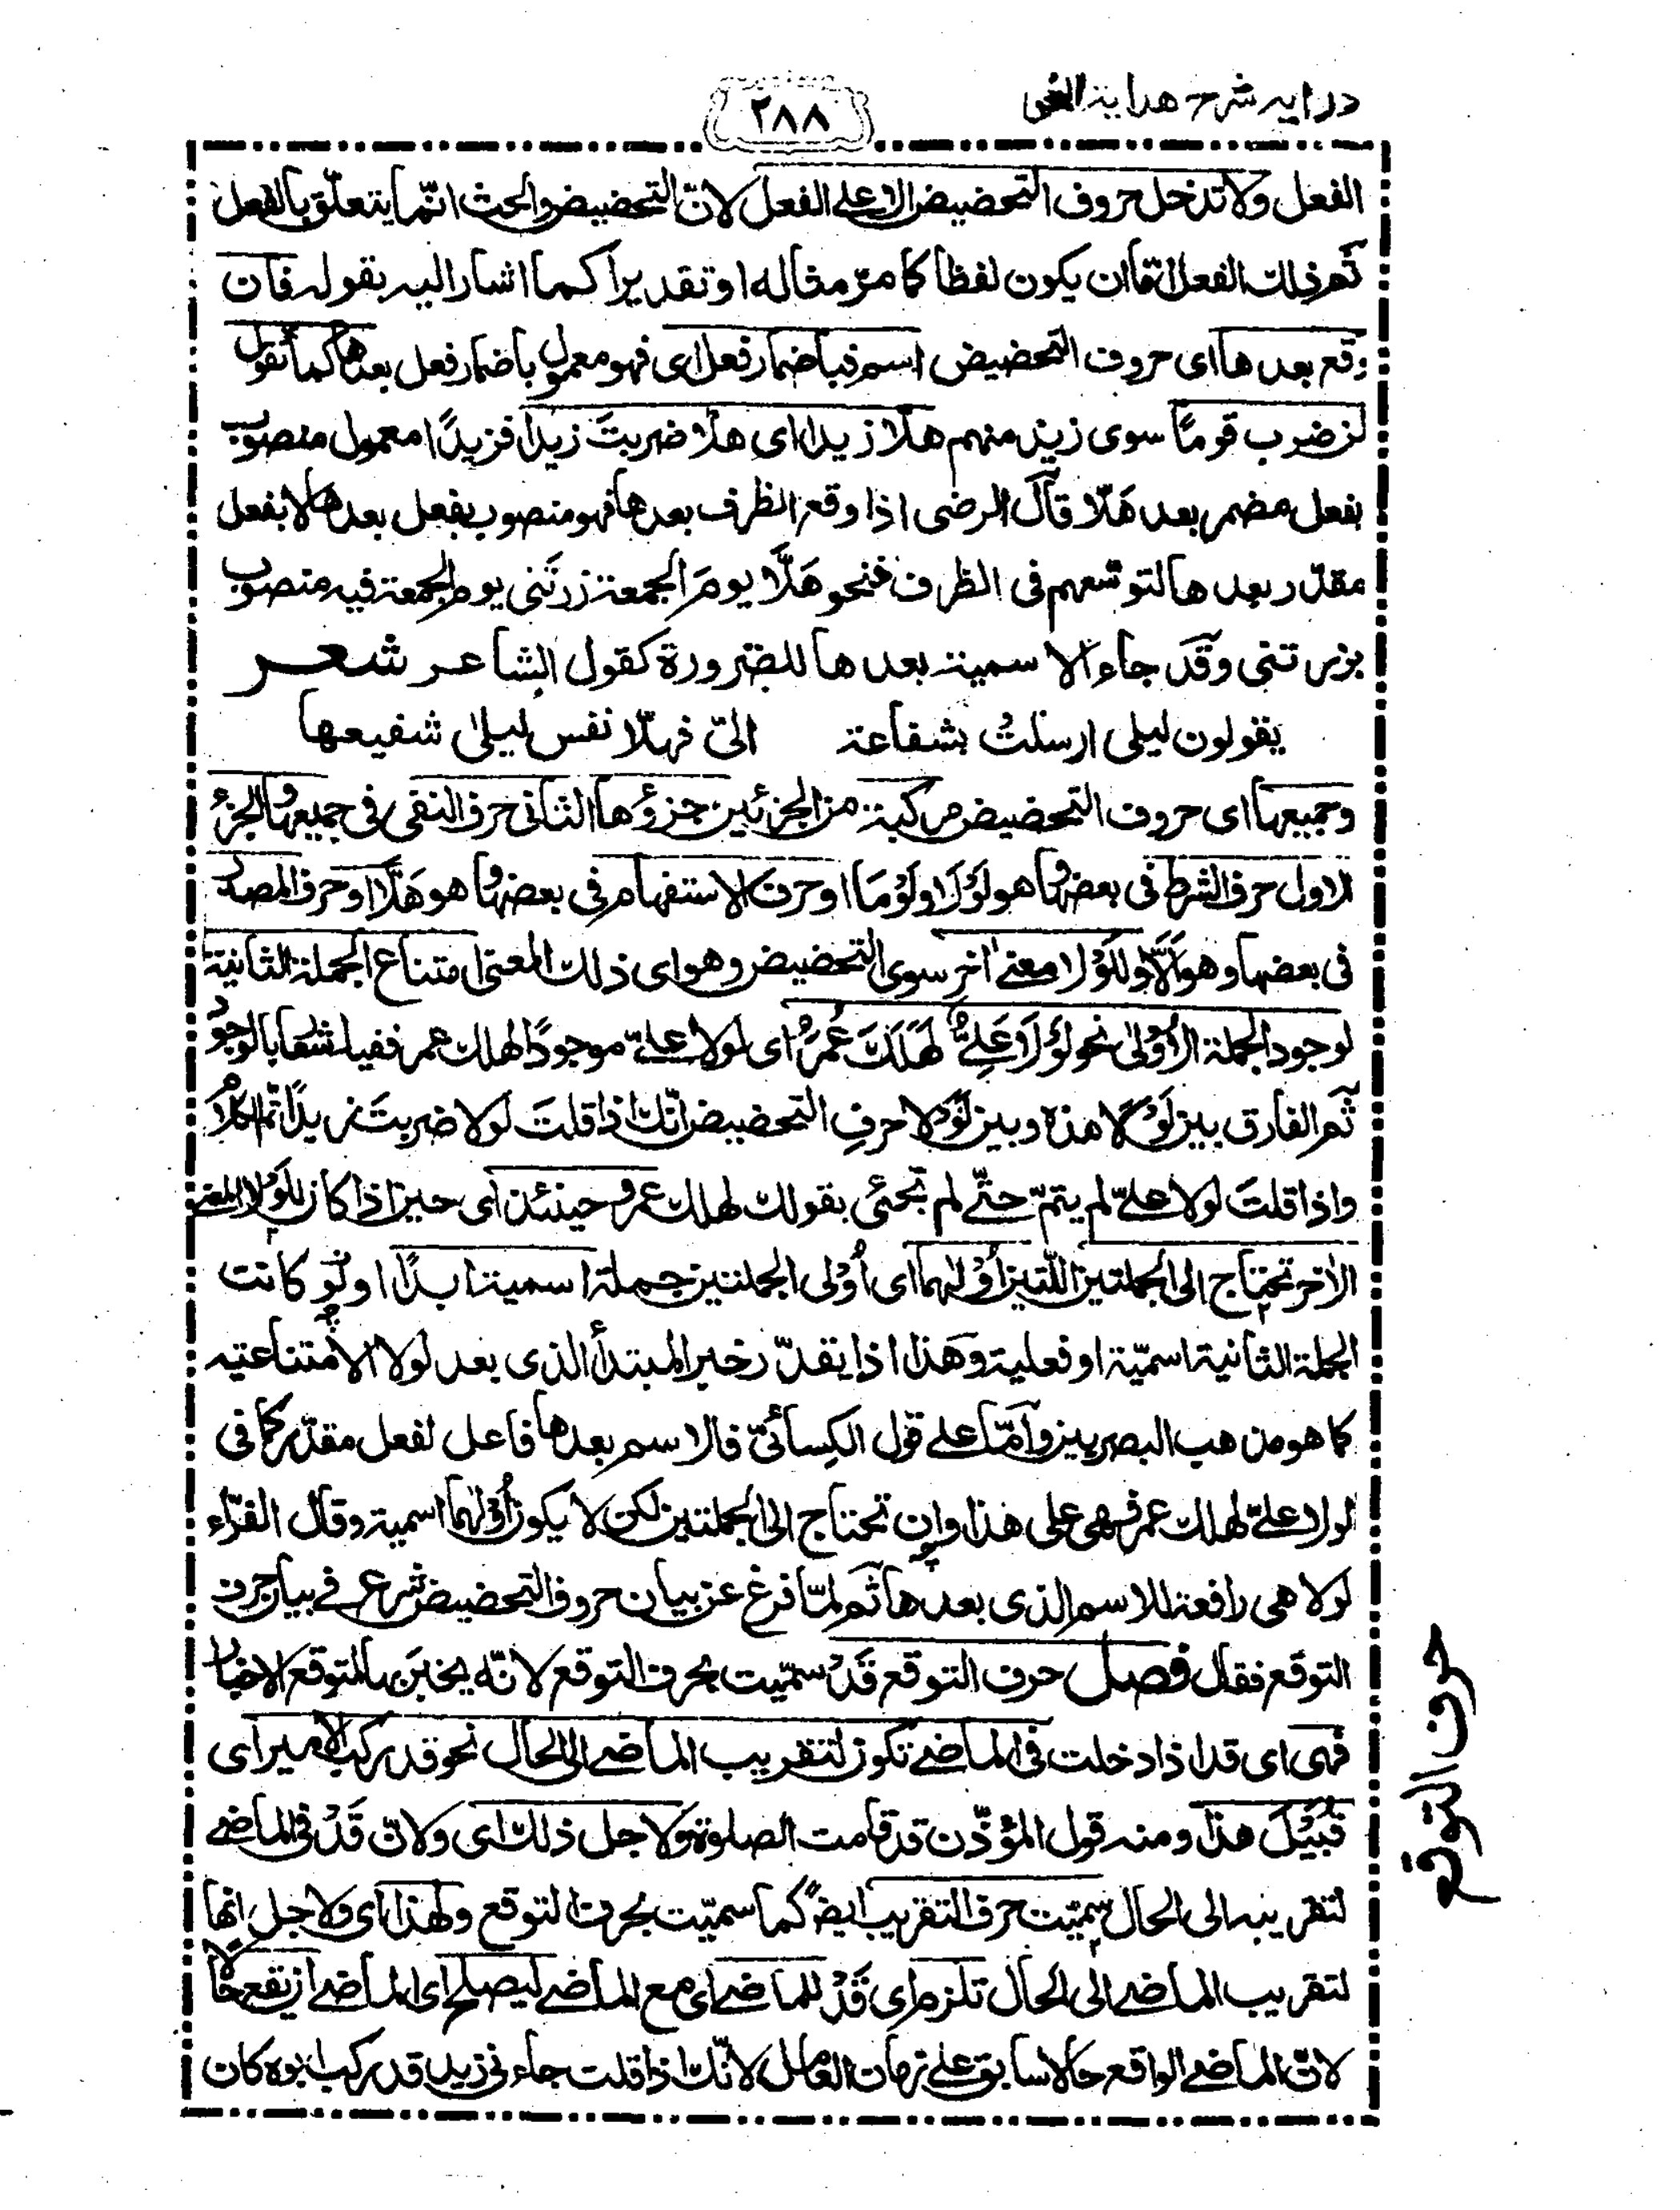 درايه شرح هداية النحو
٢٨٨
الفعل ولا تدخل حروف التحضيض الا على الفعل لانّ التحضيض والحث انّما يتعلّق بالفعل
ثم ذلك الفعل امّا ان يكون لفظا كما مرّ مثاله او تقديرا كما اشار اليه بقوله فان
وقع بعدها اى حروف التحضيض اسم فباضمار فعل اى فهو معمول باضمار فعل بعدها كما تقول
لمن ضرب قومًا سوى زيد منهم هلّا زيدا اى هلّا ضربتَ زيدا فزيدًا معمول منصوب
بفعل مضمر بعد هَلّا قال الرضى اذا وقع الظرف بعدها فهو منصوب بفعل بعدها لا بفعل
مقدّر بعدها لتوسّعهم فى الظرف فنحو هَلَّا يومَ الجمعة زرتَنى يوم الجمعة فيه منصوب
بزرتنى وقَد جاء الاسمية بعدها للضرورة كقول الشاعر شعر
يقولون ليلى ارسلتْ بشفاعة الىّ فهلّا نفس ليلىٰ شفيعها
وجميعها اى حروف التحضيض مركبة من الجزئين جزؤها الثانى حرف النفى فى جميعها والجزء
الاول حرف الشرط فى بعضها وهو لَوْلَا ولَوْمَا او حرف الاستفهام فى بعضها وهو هَلَّا او حرف المصدر
فى بعضها وهو اَلَّا ولِلَوْلا معنى اخر سوى التحضيض وهو اى ذلك المعنى امتناع الجملة الثانية
لوجود الجملة الاُولىٰ نحو لَوْلَا عَلِىٌّ لَهَلَكَ عُمَرُ اى لولا علىّ موجودًا لهلك عمر ففيه اشعار بالوجود
ثم الفارق بين لَوْلا هذه وبين لَوْلا حرفِ التحضيض انّك اذا قلتَ لولا ضربتَ زيدًا تم الكلام
واذا قلتَ لولا علىّ لم يتمّ حتّى لم تجئى بقولك لهلك عمر وحينئذ اى حين اذا كان للَوْلا المعنى
الاخر تحتاج الى الجملتين اللّتين اُوْلٰهما اى اُوْلى الجملتين جملة اسمية ابدًا او لَوْ كانت
الجملة الثانية اسميّة او فعلية وهذا اذا يقدّر خبر المبتدأ الذى بعد لولا الامتناعتيه
كما هو مذهب البصريين وامّا على قول الكِسائىّ فالاسم بعدها فاعل لفعل مقدّر كما فى
لولا علىّ لهلك عمر فهى على هذا وان تحتاج الى الجملتين لكن لا يكون اُوْلٰهما اسمية وقال الفرّاء
لولا هى رافعة للاسم الذى بعدها ثم لمّا فرغ عن بيان حروف التحضيض شرع فى بيان حرف
التوقع فقال فصل حرف التوقع قَدْ سمّيت بحرف التوقع لانّه يخبَر بها لمتوقع الاخبار
فهى اى قد اذا دخلت فى الماضى تكون لتقريب الماضى الى الحال نحو قد ركب الامير اى
قُبَيْلَ هذا ومنه قول المؤذّن قد قامت الصلوة ولاجل ذلك اى ولانّ قَدْ فى الماضى
لتقريبه الى الحال سمّيت حرف التقريب ايضًا كما سميّت بحرف التوقع ولهذا اى ولاجل انها
لتقريب الماضى الى الحال تلزم اى قَدْ للماضى اى مع الماضى ليصلح اى الماضى ان يقع حالًا
لانّ الماضى الواقع حالا سابق على زمان العامل لانّك اذا قلت جاءنى زيد قد ركب ابوه كان
حرف التوقع